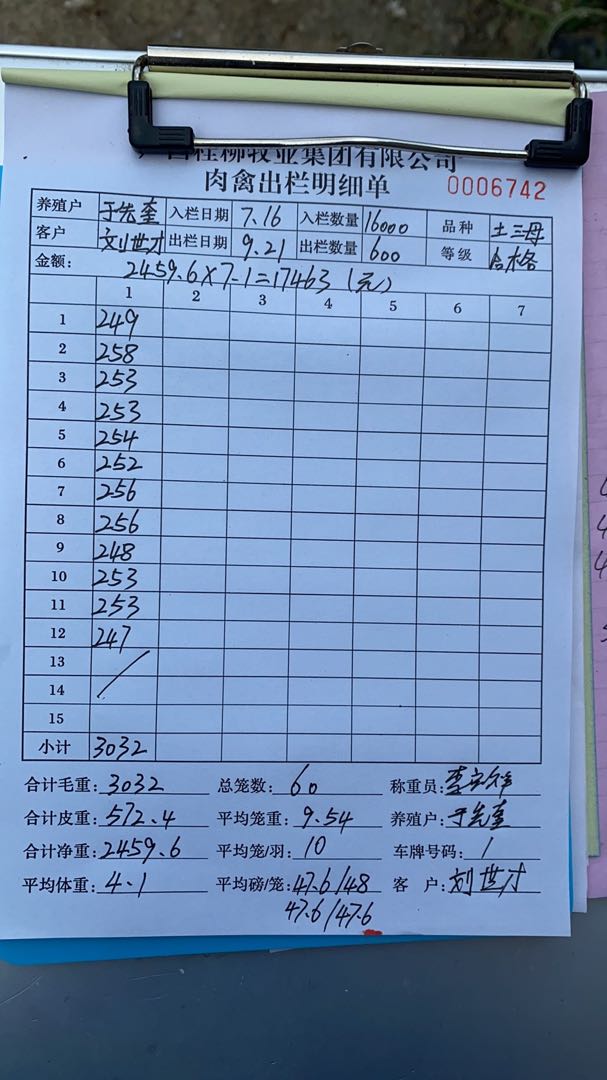 西桂柳牧业集团有限公司
肉禽出栏明细单 0006742
养殖户 于先奎 入栏日期 7.16 入栏数量 16000 品种 土三母
客户 刘世才 出栏日期 9.21 出栏数量 600 等级 合格
金额: 2459.6×7.1=17463(元)
1 2 3 4 5 6 7
1 249
2 258
3 253
4 253
5 254
6 252
7 256
8 256
9 248
10 253
11 253
12 247
13
14
15
小计 3032
合计毛重: 3032 总笼数: 60 称重员: 李
合计皮重: 572.4 平均笼重: 9.54 养殖户: 于先奎
合计净重: 2459.6 平均笼/羽: 10 车牌号码: 1
平均体重: 4.1 平均磅/笼: 47.6/48 客 户: 刘世才
47.6/47.6